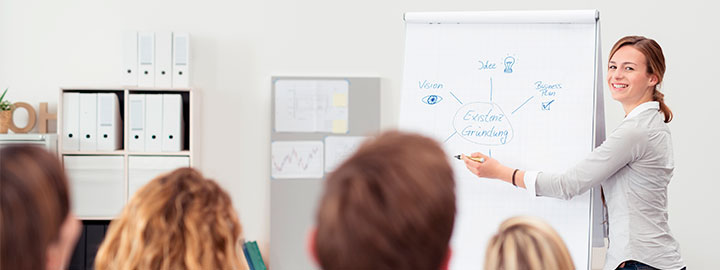 Idee
Vision
Business
Plan
Existenz
Gründung
OH